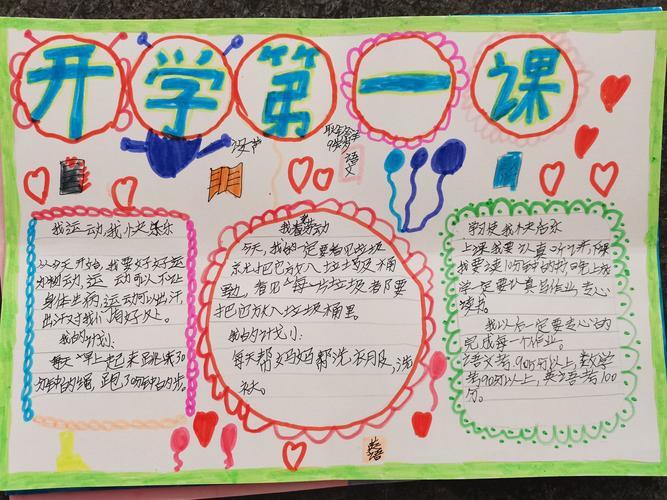 开学第一课
语文
我运动,我快乐
从今天开始,我要好好运
动,运动可以不让
身体生病,运动可以出汗
出汗对我们有好处。
我的计划:
每天早上起来跳绳30
分钟的绳,跑30分钟的步。
我爱劳动
今天,我一定要看见垃圾
就把它放入垃圾桶
里,看见每一片垃圾都要
把它放入垃圾桶里。
我的计划:
每天帮妈妈洗衣服,洗
衣。
学习使我快乐
上课我要认真听讲,下课
我要读10分钟的书,晚上放
学一定要认真写作业,专心
读书。
我以后一定要专心的
完成每一个作业。
语文考90分以上,数学
考90分以上,英语考100
分。
英语